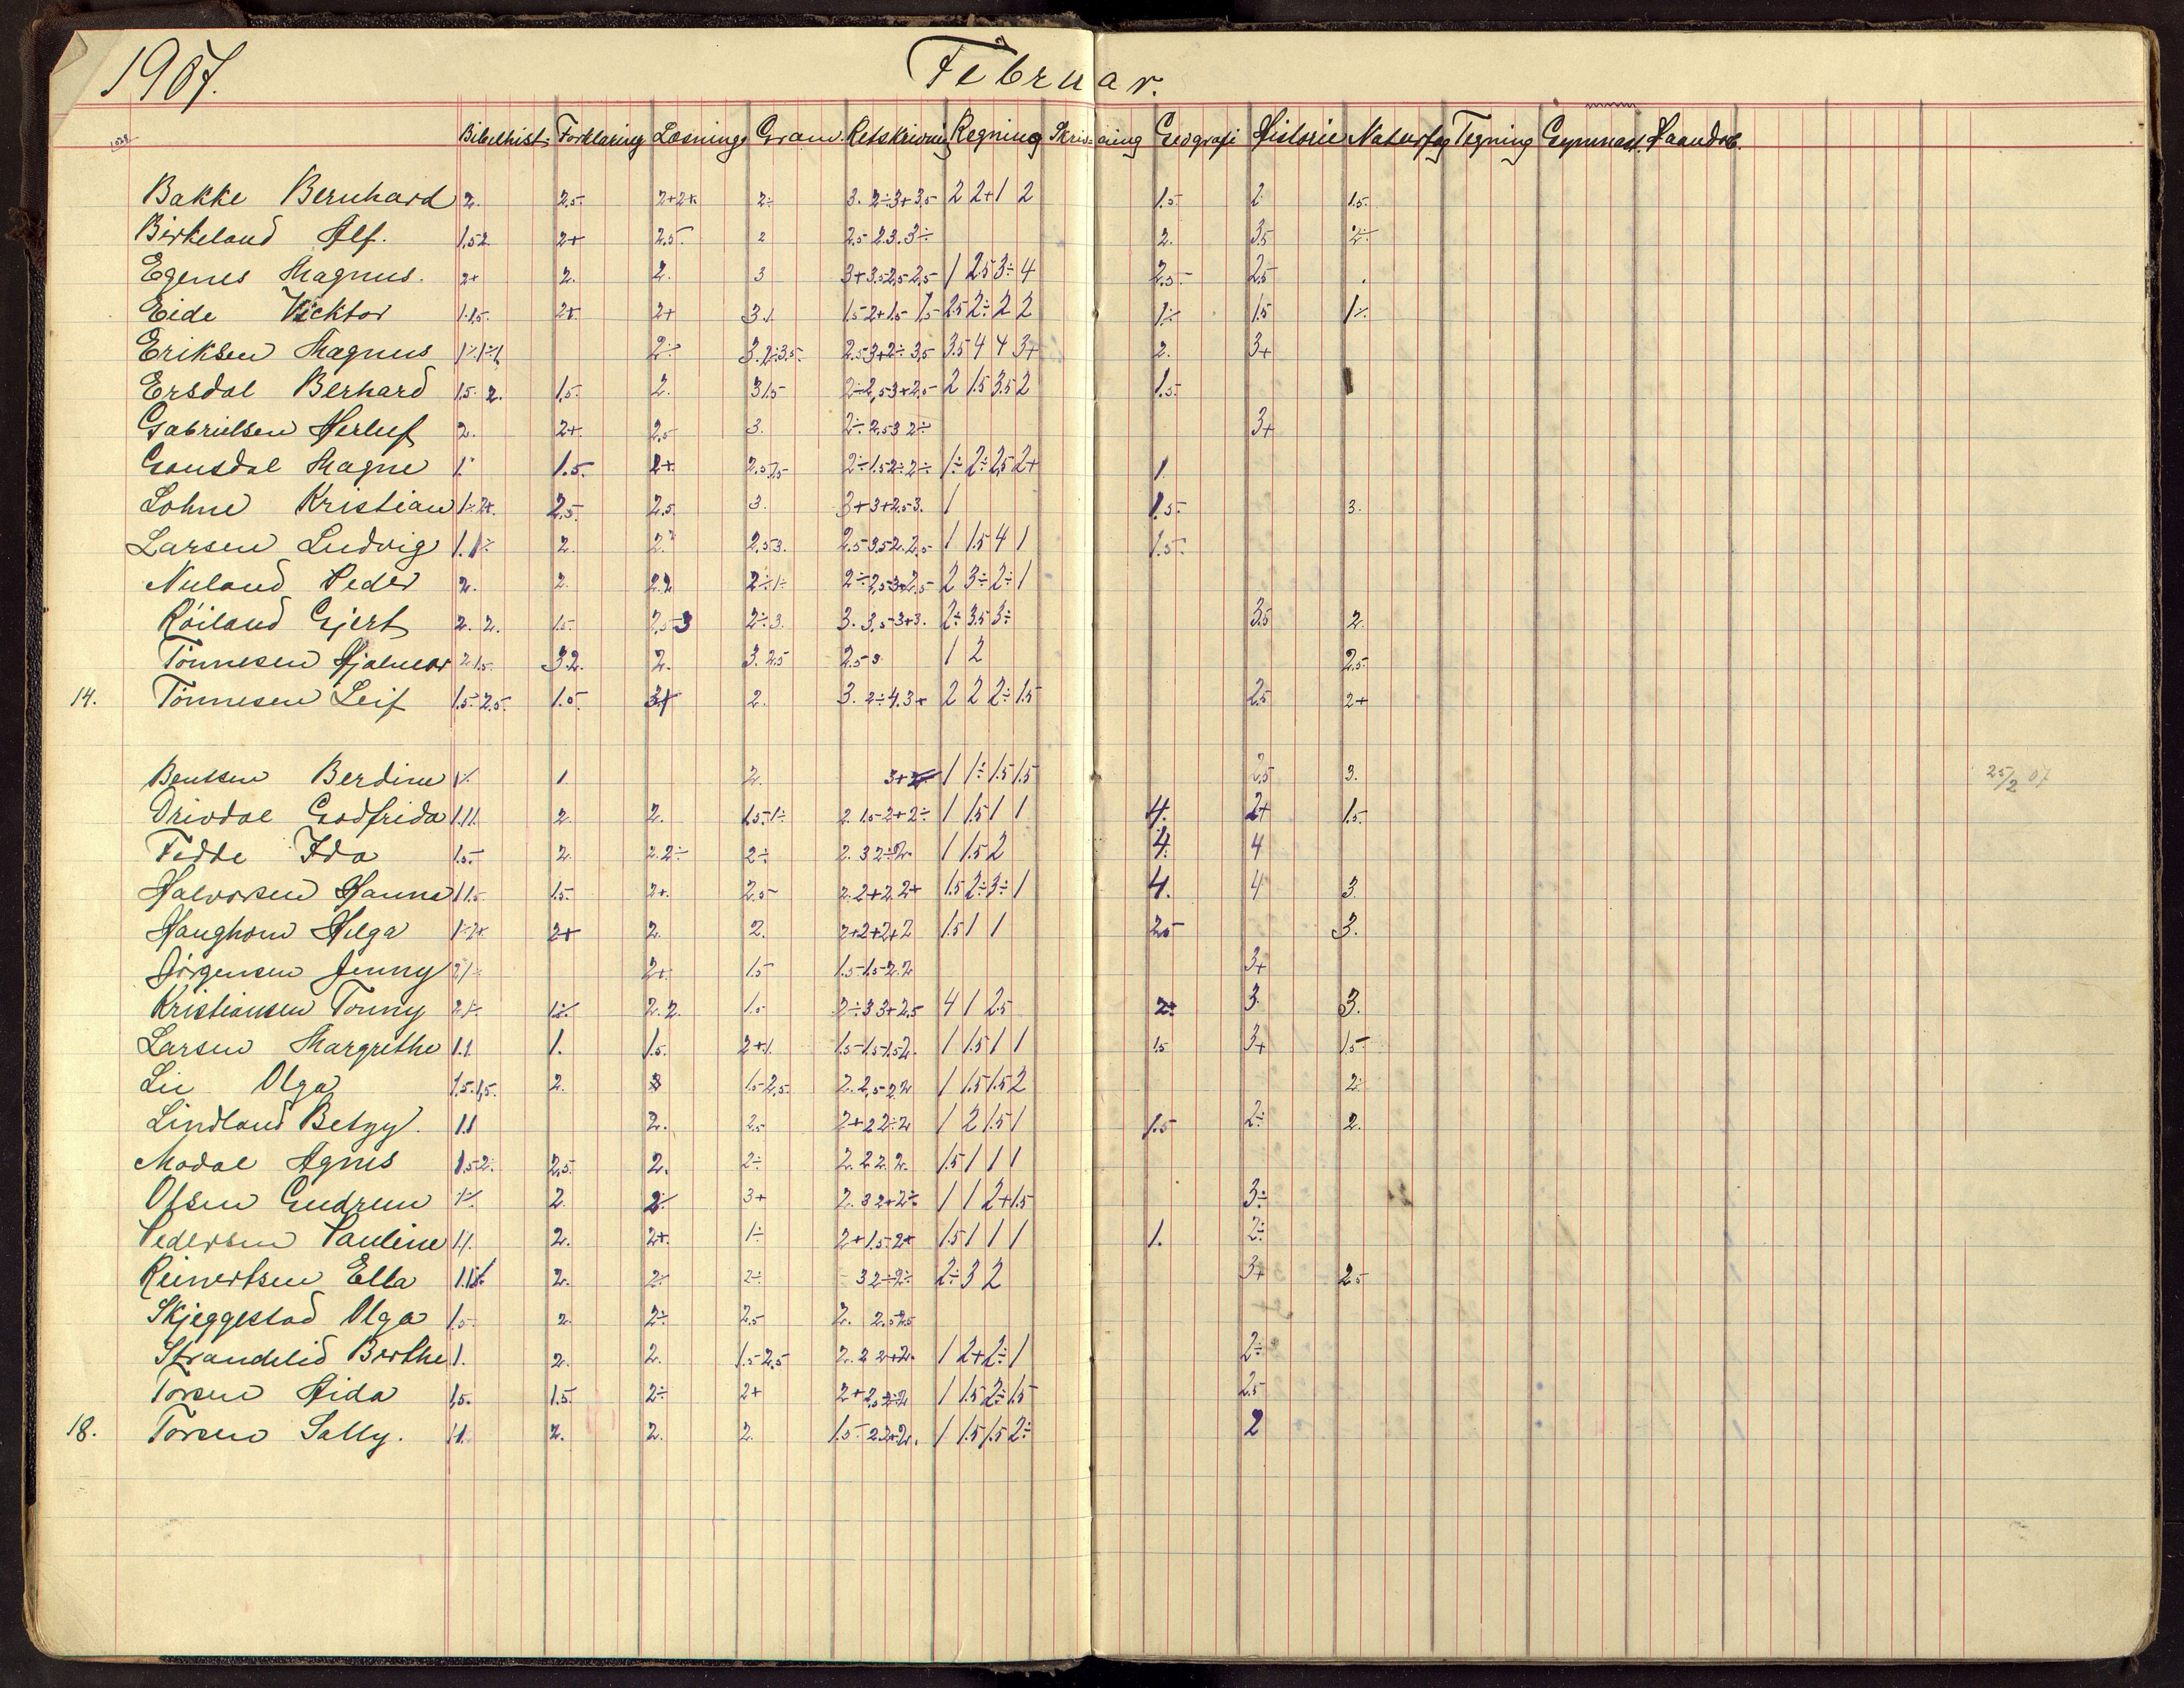 1907. Februar.
Bibelhist. Forklaring Læsning Gram. Retskrivning Regning Skrivning Geografi Historie Naturfag Tegning Gymnast. Haandarb.
Bakke Bernhard 2. 2.5. 2+2+ 2÷ 3. 2÷3+3,5 2 2+1 2 1.5. 2 1.5.
Birkeland Alf. 1.52. 2+ 2.5. 2 2.5 2.3.3÷ 2. 35 2÷
Egenes Magnus. 2+ 2. 2. 3 3+3.5 2,5 2,5 1 2.5 3÷ 4 2.5. 25
Eide Vicktor 1.1.5. 2+. 2+ 3.1. 1.5 2+1.5 1,5 2.5 2÷ 2 2 1÷ 1.5 1÷
Eriksen Magnus 2÷ 3.2÷3.5. 2.5 3+2÷ 3,5 3.5 4 4 3+ 2. 3+
Ersdal Berhard 1.5. 2. 1.5. 2. 31.5 2÷2,5 3+2,5 2 1.5 3.5 2 1.5.
Gabrielsen Herluf 2. 2+. 2,5 3. 2÷ 2.5 3 2÷ 3+
Gausdal Magne 1. 1.5. 2+. 2÷1.5 2÷2÷ 1÷ 2÷ 2,5 2+ 1.
Lohne Kristian 1÷2+. 2.5. 2.5. 3. 3+3+2.5 3. 1 1.5. 3.
Larsen Ludvig 1.1÷ 2. 2. 2.5 3. 2.5 3.5 2.2,5 1 1.5 4 1 1.5.
Nuland Peder 2. 2. 2.2 2÷1÷ 2÷2,5 3+2,5 2 3÷ 2÷ 1
Röiland Gjert 2. 2. 1.5. 2,5 3 2÷3. 3. 3,5 3+3. 2÷ 3.5 3÷ 3.5 2.
Tönnesen Hjalmar 2.1.5. 3.2. 2. 3. 2.5 2.5 3. 1 2 2.5.
14. Tönnesen Leif 1.5÷2.5. 1.5. 3+ 2. 3. 2÷4.3+ 2 2 2÷ 1.5 2.5 2+
Bentsen Berdine 1÷ 1. 2. 3+ 1 1÷ 1.5 1.5 2,5 3. 25/2 07
Drivdal Godfrida 1.11. 2. 2. 1.5÷1÷ 2. 1.5 2+2÷ 1 1.5 1 1 4. 2+ 1.5.
Fedde Ida 1.5. 2. 2.2÷ 2÷ 2. 3 2÷2. 1 1.5 2 4. 4
Halvorsen Hanna 11.5 1.5. 2+. 2.5 2.2+2.2+ 1.5 2÷ 3÷ 1 4. 4 3.
Haughom Helga 1÷2+. 2+ 2. 2. 2+2+2+2 1.5 1 1 2.5 3.
Jörgensen Jenny 2+. 1.5 1.5 1.5 2.2 3+
Kristiansen Tonny 2.1÷ 1÷ 2.2. 1.5 2÷3 3+2.5 4 1 2.5 2+ 3. 3.
Larsen Margrethe 1.1. 1. 1.5. 2+1. 1.5 1.5 1.5 2. 1 1.5 1 1 1.5 3+ 1.5.
Lie Olga 1.5.1,5. 2. 3 1.5 2,5. 2.2,5 2.2 1 1.5 1.5 2 2÷
Lindland Betzy. 1.1 2. 2.5 2+22÷2 1 2 1.5 1 1.5 2÷ 2.
Modal Agnes 1.5 2. 2.5. 2. 2÷ 2.2 2.2. 1.5 1 1 1
Olsen Gudrun 1÷ 2. 2÷ 3+ 2.3 2+2÷ 1 1 2+1.5 3÷
Pedersen Pauline 1.1. 2. 2+. 1÷ 2+1.5 2+ 1.5 1 1 1 1. 2÷
Reinertsen Ella 2. 2÷ 2÷ 3 2÷2÷ 2÷ 3 2 3+ 2.5
Skjeggestad Olga 1.5. 2. 2÷ 2.5 2. 2.5 2.5
Strandlid Berthe 1. 2. 2. 1.5 2,5 2. 2 2+2. 1 2+2÷ 1 2÷
Torsen Aida 1,5. 1.5. 2÷ 2+ 2+2,5 2÷2 1 1.5 2÷ 1.5 2.5
18. Torsen Sally. 1.1. 2. 2. 2. 1.5. 2 2+2. 1 1.5 1.5 2÷ 2